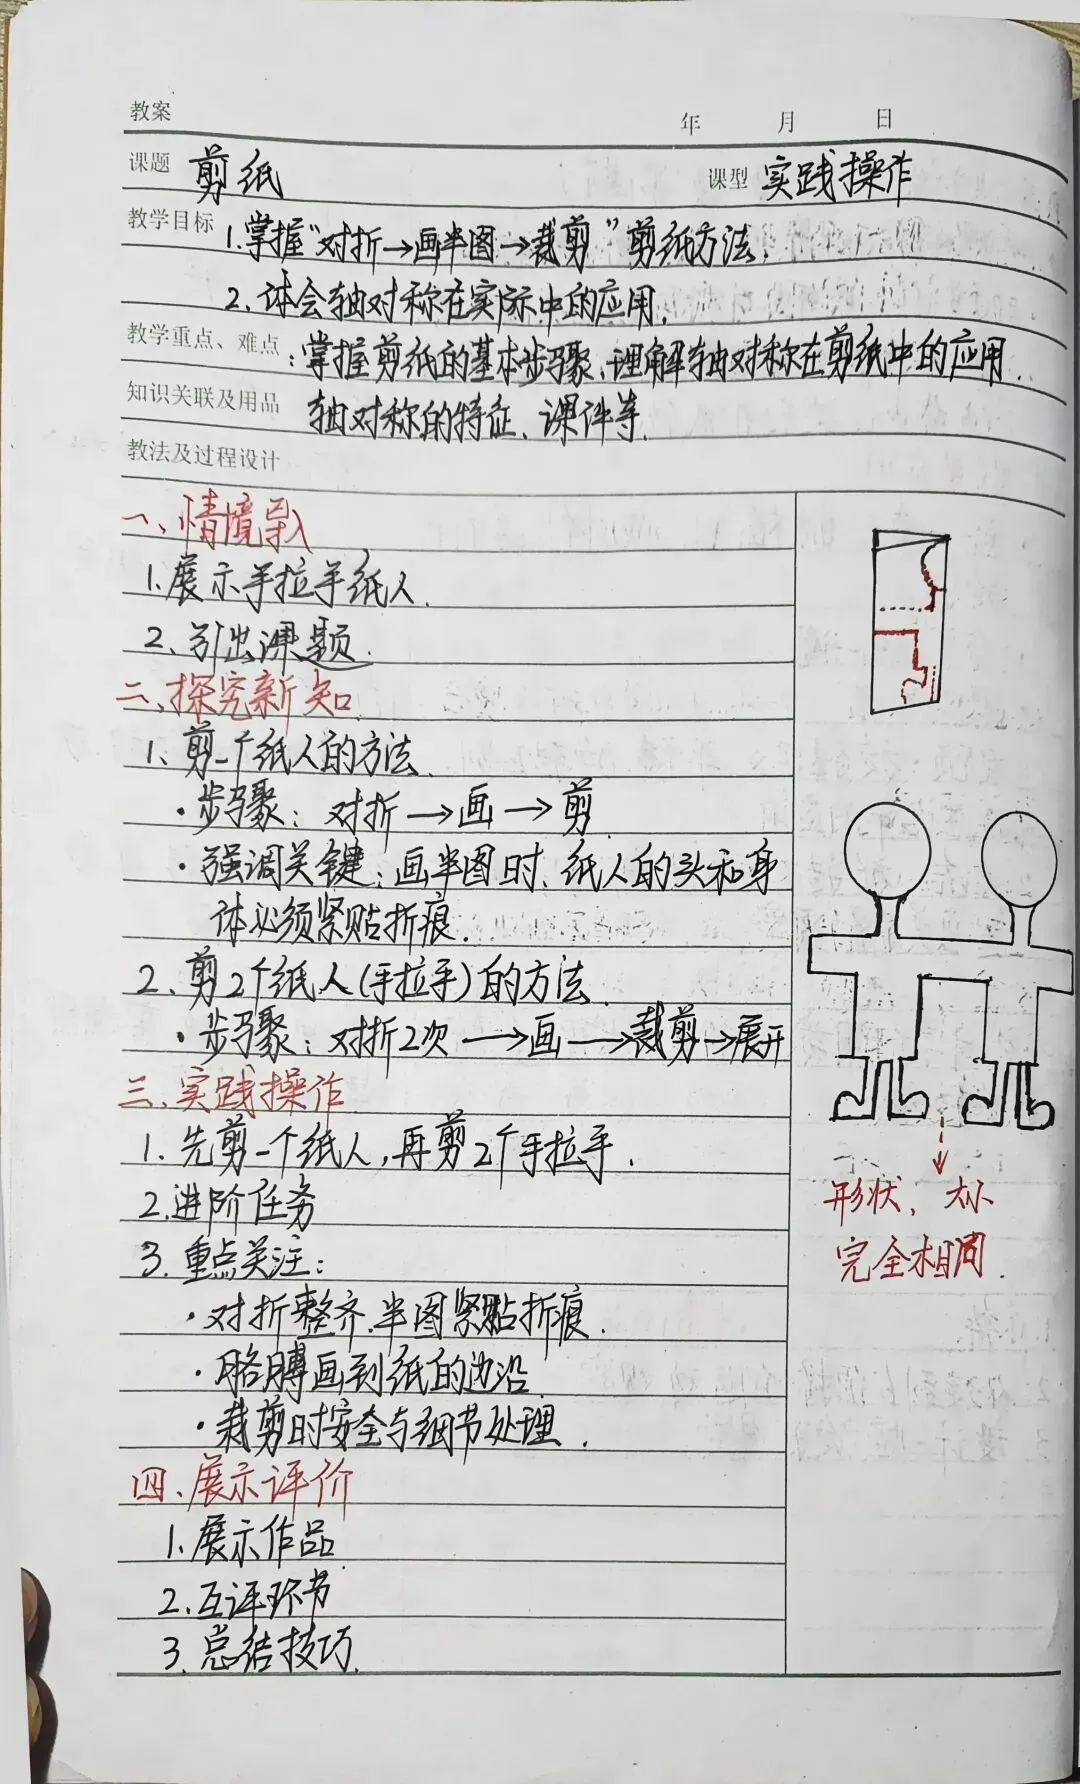 教案 年 月 日
课题 剪纸 课型 实践操作
教学目标 1.掌握“对折→画半图→裁剪”剪纸方法.
2.体会轴对称在实际中的应用.
教学重点、难点:掌握剪纸的基本步骤、理解轴对称在剪纸中的应用.
知识关联及用品 轴对称的特征、课件等.
教法及过程设计
一、情境导入
1.展示手拉手纸人.
2.引出课题.
二、探究新知
1、剪一个纸人的方法.
·步骤:对折→画→剪
·强调关键:画半图时、纸人的头和身
体必须紧贴折痕.
2.剪2个纸人(手拉手)的方法.
·步骤:对折2次→画→裁剪→展开
三、实践操作
1.先剪一个纸人,再剪2个手拉手.
2.进阶任务
3.重点关注:
·对折整齐.半图紧贴折痕.
·胳膊画到纸的边沿.
·裁剪时安全与细节处理.
四、展示评价
1.展示作品.
2.互评环节
3.总结技巧.
形状、大小
完全相同.